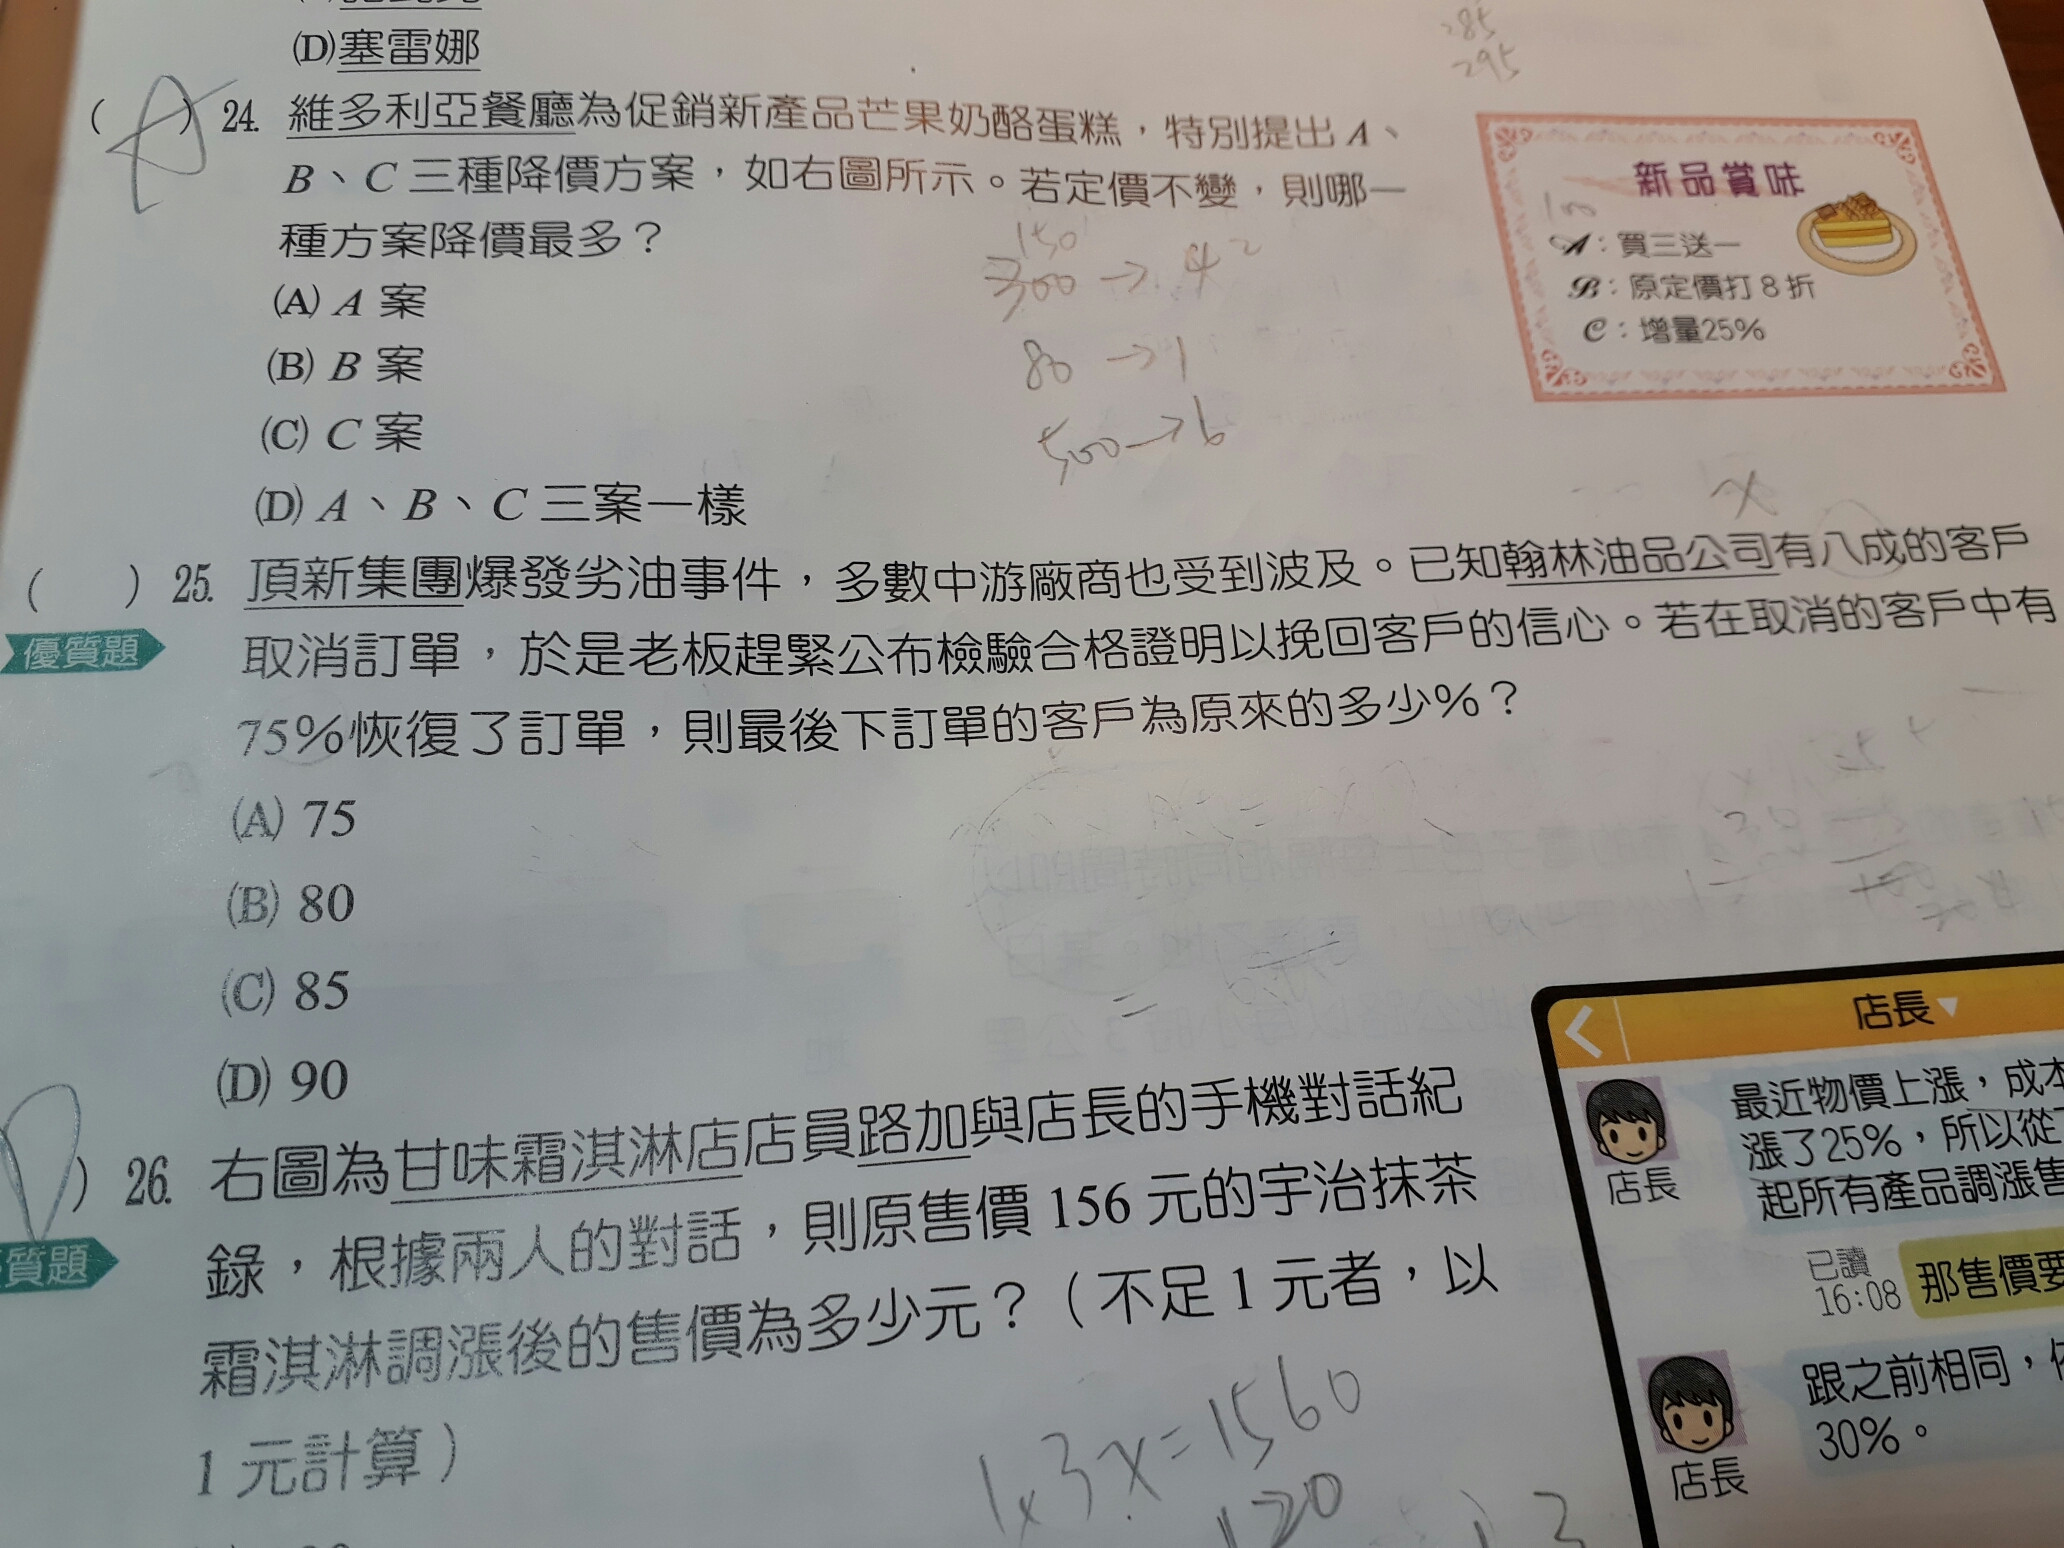 (D)塞雷娜
( ) 24. 維多利亞餐廳為促銷新產品芒果奶酪蛋糕，特別提出 A、
B、C 三種降價方案，如右圖所示。若定價不變，則哪一
種方案降價最多？
(A) A 案
(B) B 案
(C) C 案
(D) A、B、C 三案一樣
新品賞味
A：買三送一
B：原定價打 8 折
C：增量25%
285
295
150
300 → 4
80 → 1
500 → 6
( ) 25. 頂新集團爆發劣油事件，多數中游廠商也受到波及。已知翰林油品公司有八成的客戶
優質題
取消訂單，於是老板趕緊公布檢驗合格證明以挽回客戶的信心。若在取消的客戶中有
75%恢復了訂單，則最後下訂單的客戶為原來的多少%？
(A) 75
(B) 80
(C) 85
(D) 90
) 26. 右圖為甘味霜淇淋店店員路加與店長的手機對話紀
質題
錄，根據兩人的對話，則原售價 156 元的宇治抹茶
霜淇淋調漲後的售價為多少元？（不足 1 元者，以
1 元計算）
1.3x=1560
120
店長
最近物價上漲，成本
漲了25%，所以從
起所有產品調漲售
店長
已讀
16:08
那售價要
跟之前相同，
30%。
店長